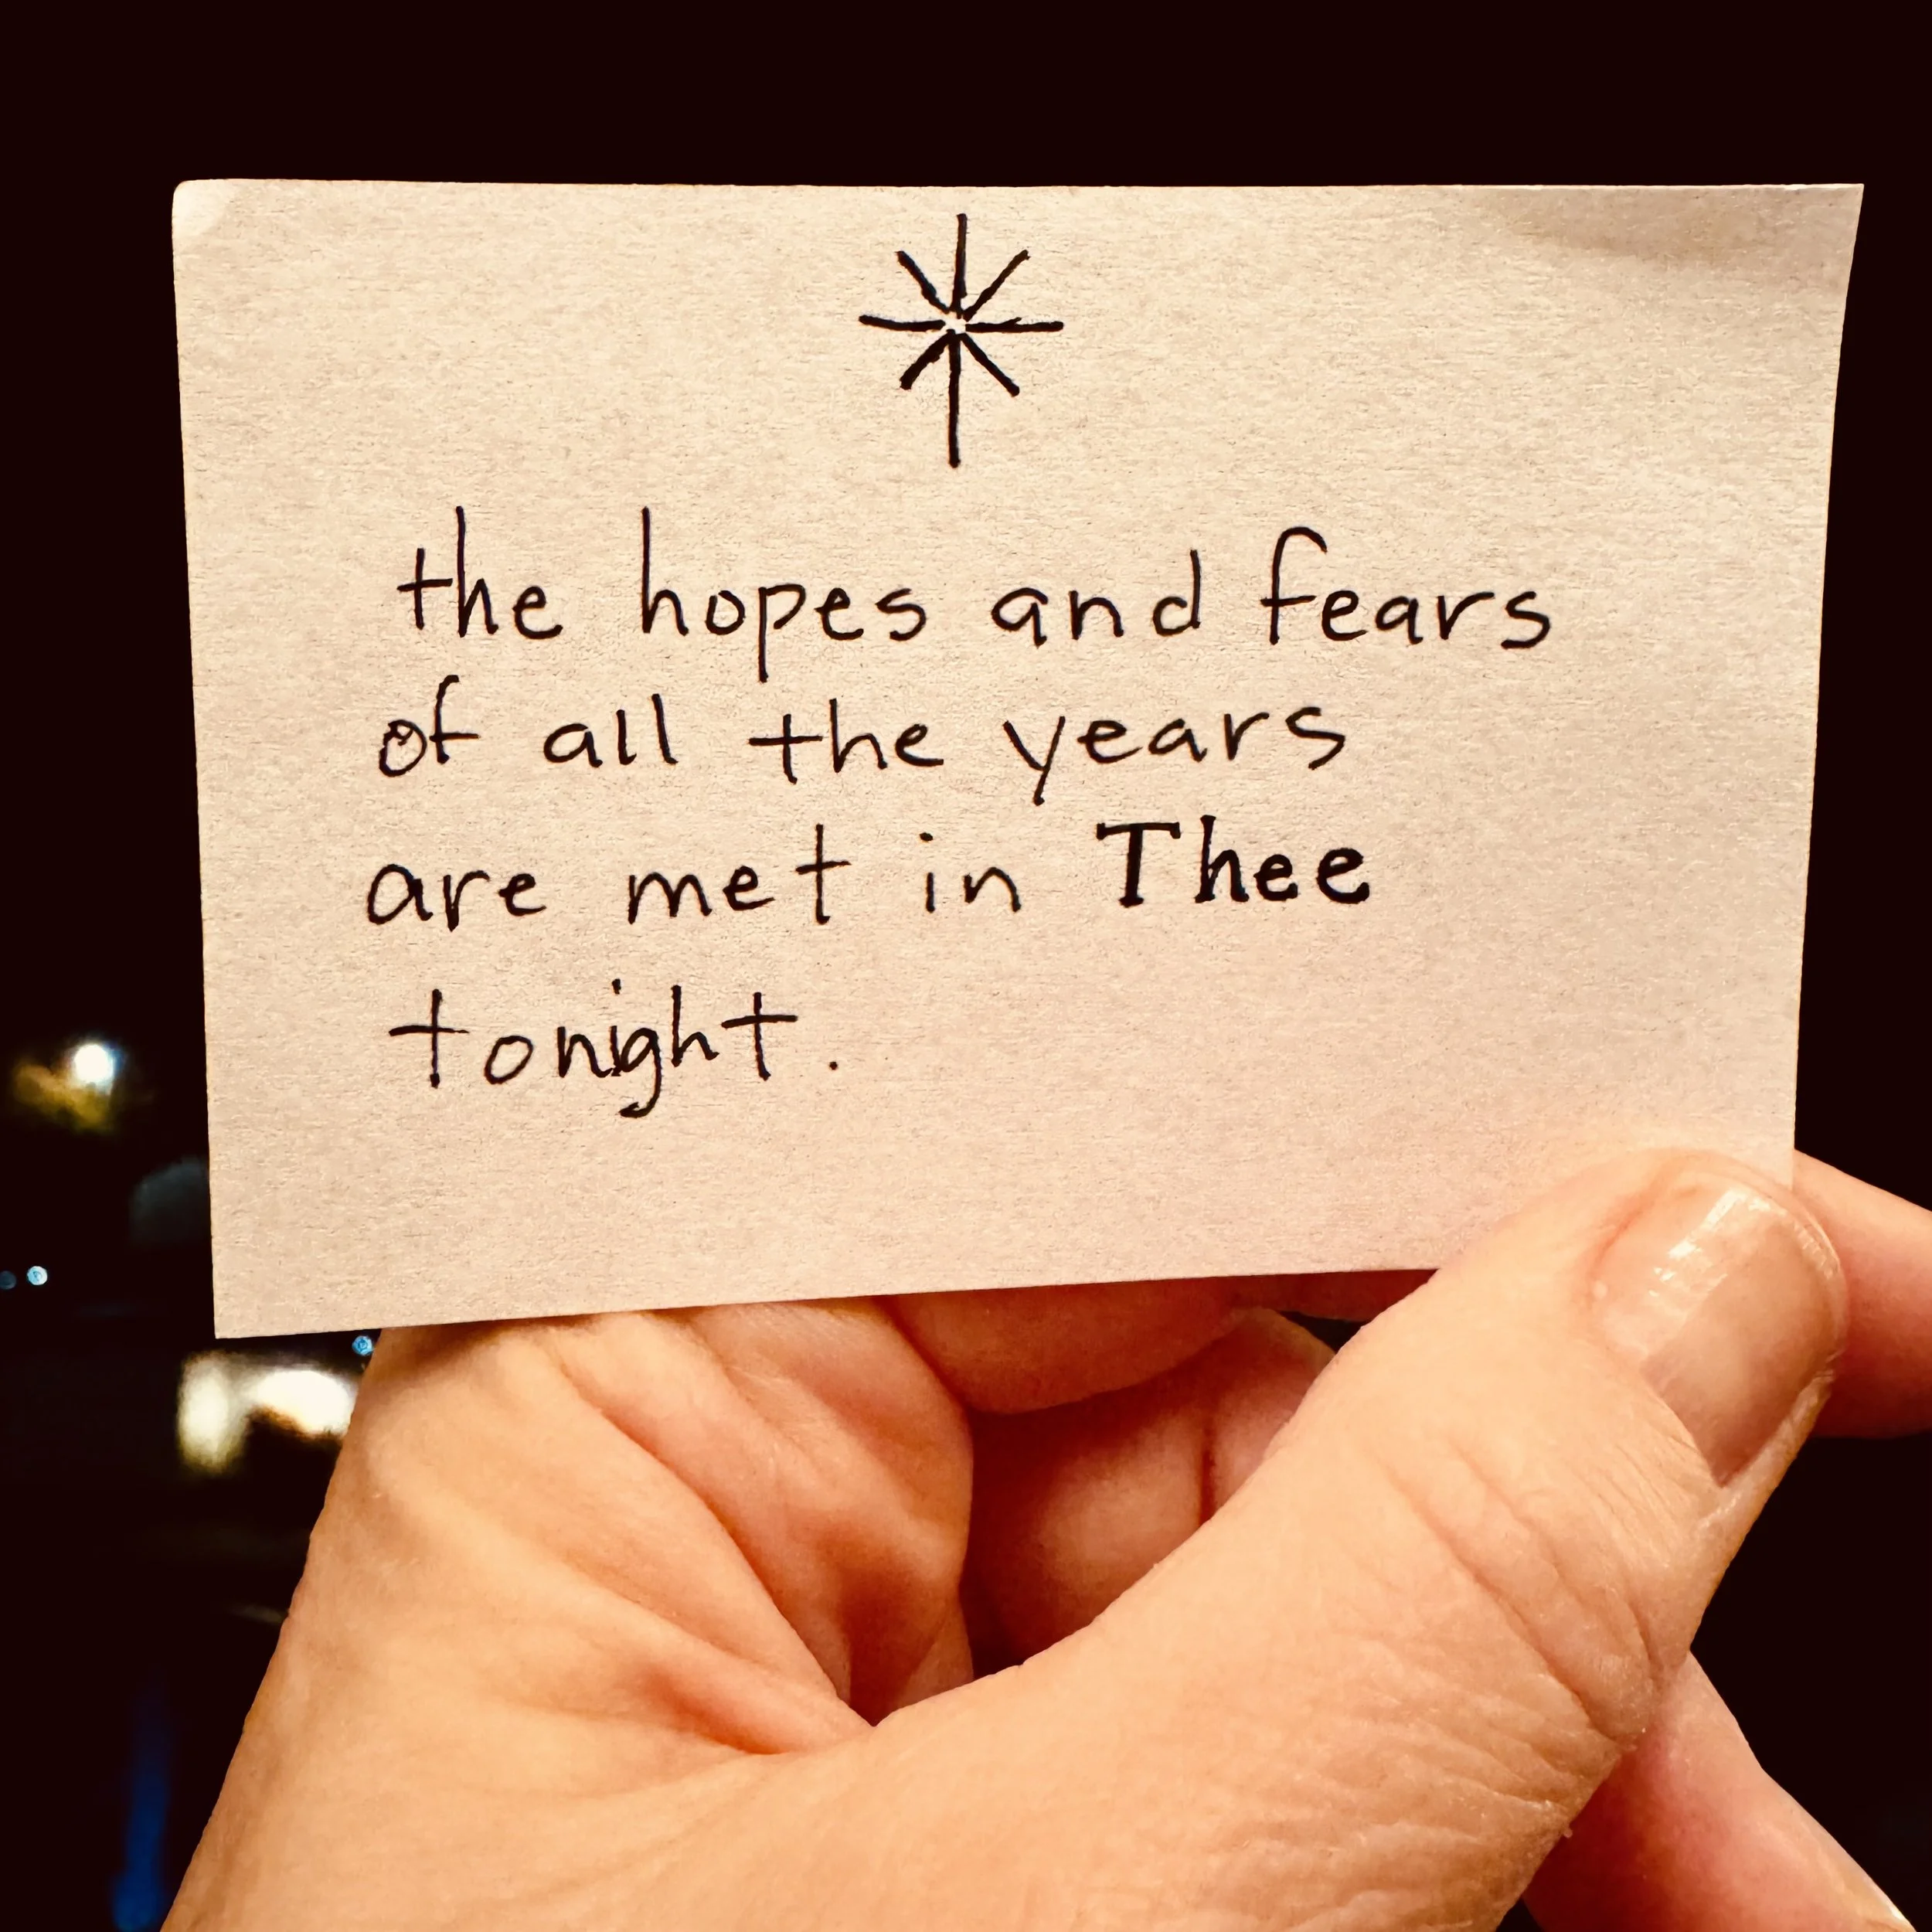 the hopes and fears
of all the years
are met in Thee
tonight.